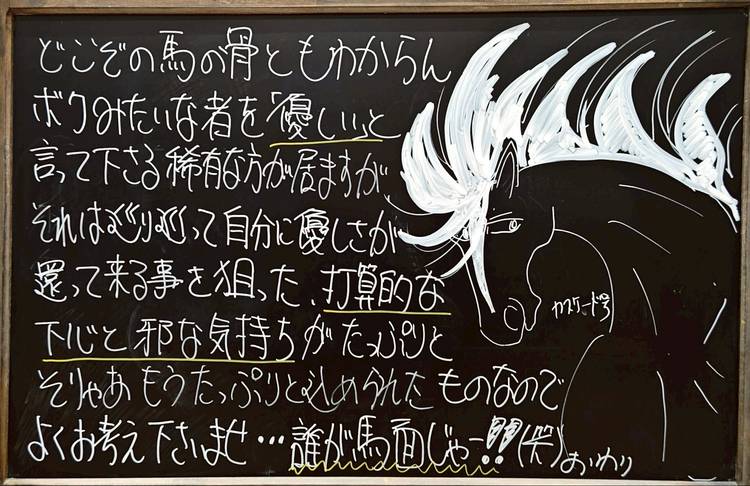 どこぞの馬の骨ともわからん
ボクみたいな者を「優しい」と
言って下さる稀有な方が居ますが
それは巡り巡って自分に優しさが
還って来る事を狙った、打算的な
下心と邪な気持ちがたっぷりと
そりゃあもうたっぷりと込められたものなので
よくお考え下さいませ…誰が馬面じゃー!!(笑)おわり
カスケード号